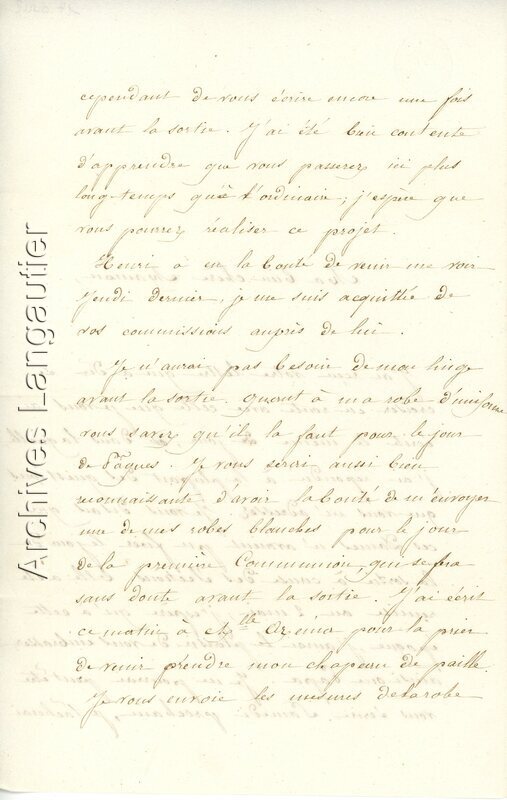 cependant de vous écrire encore une fois
avant la sortie. J'ai été bien contente
d'apprendre que vous passerez ici plus
long-temps qu'à l'ordinaire; j'espère que
vous pourrez réaliser ce projet.
Henri a eu la bonté de venir me voir
Jeudi dernier, je me suis acquittée de
vos commissions auprès de lui.
Je n'aurai pas besoin de mon linge
avant la sortie. quant à ma robe d'uniforme
vous savez qu'il la faut pour le jour
de Pâques. Je vous serai aussi bien
reconnaissante d'avoir la bonté de m'envoyer
une de mes robes blanches pour le jour
de la première Communion, qui se fera
sans doute avant la sortie. J'ai écrit
ce matin à Mlle pour la prier
de venir prendre mon chapeau de paille.
Je vous envoie les mesures de la robe
Archives Langautier